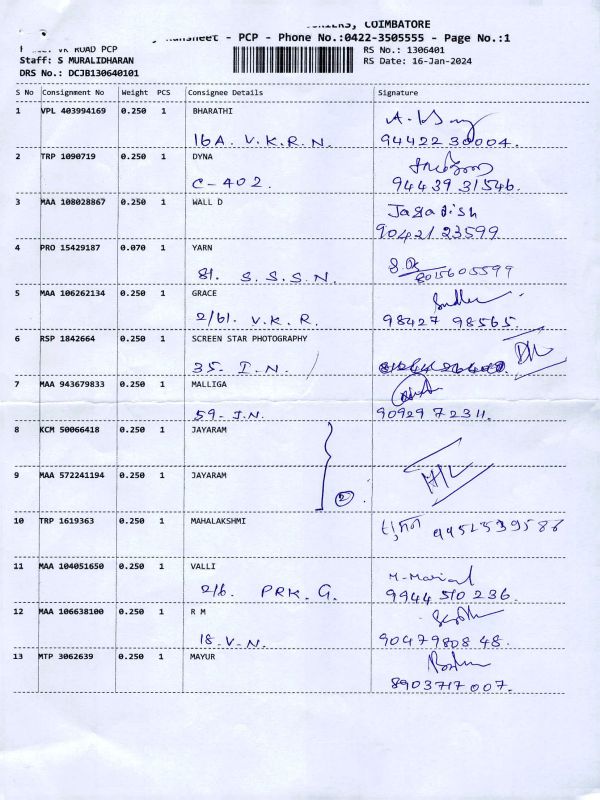 COIMBATORE
- PCP - Phone No.:0422-3505555 - Page No.:1
VK ROAD PCP
RS No.: 1306401
Staff: S MURALIDHARAN
RS Date: 16-Jan-2024
DRS No.: DCJB130640101
S No Consignment No Weight PCS Consignee Details Signature
1 VPL 403994169 0.250 1 BHARATHI
16A. V.K.R.N. 94422 30004.
2 TRP 1090719 0.250 1 DYNA
C-402. 94439 31546.
3 MAA 108028867 0.250 1 WALL D Jagadish
90421 23599
4 PRO 15429187 0.070 1 YARN
81. S.S.S.N. 8015605599
5 MAA 106262134 0.250 1 GRACE
2/61. V.K.R. 98427 98565.
6 RSP 1842664 0.250 1 SCREEN STAR PHOTOGRAPHY
35. I.N.
7 MAA 943679833 0.250 1 MALLIGA
59-I.N. 90929 72311.
8 KCM 50066418 0.250 1 JAYARAM
9 MAA 572241194 0.250 1 JAYARAM
2
10 TRP 1619363 0.250 1 MAHALAKSHMI
11 MAA 104051650 0.250 1 VALLI
2/6. PRK.G. 9944 510 236.
12 MAA 106638100 0.250 1 R M
18-V-N. 9047980848.
13 MTP 3062639 0.250 1 MAYUR
8903717007.